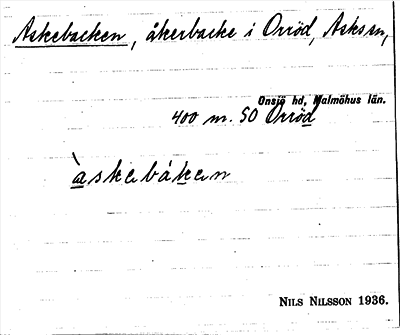 Askebacken, åkerbacke i Orröd, Asks sn,
Onsjö hd, Malmöhus län.
400 m. SO Orröd
àskebáken
NILS NILSSON 1936.